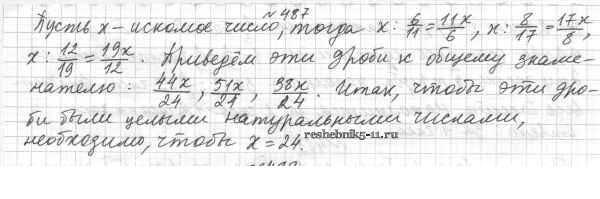 №487
Пусть x - искомое число, тогда x : 6/11 = 11x/6, x : 8/17 = 17x/8,
x : 12/19 = 19x/12. Приведём эти дроби к общему знаме-
нателю: 44x/24, 51x/24, 38x/24. Итак, чтобы эти дро-
би были целыми натуральными числами,
необходимо, чтобы x = 24.
reshebnik5-11.ru